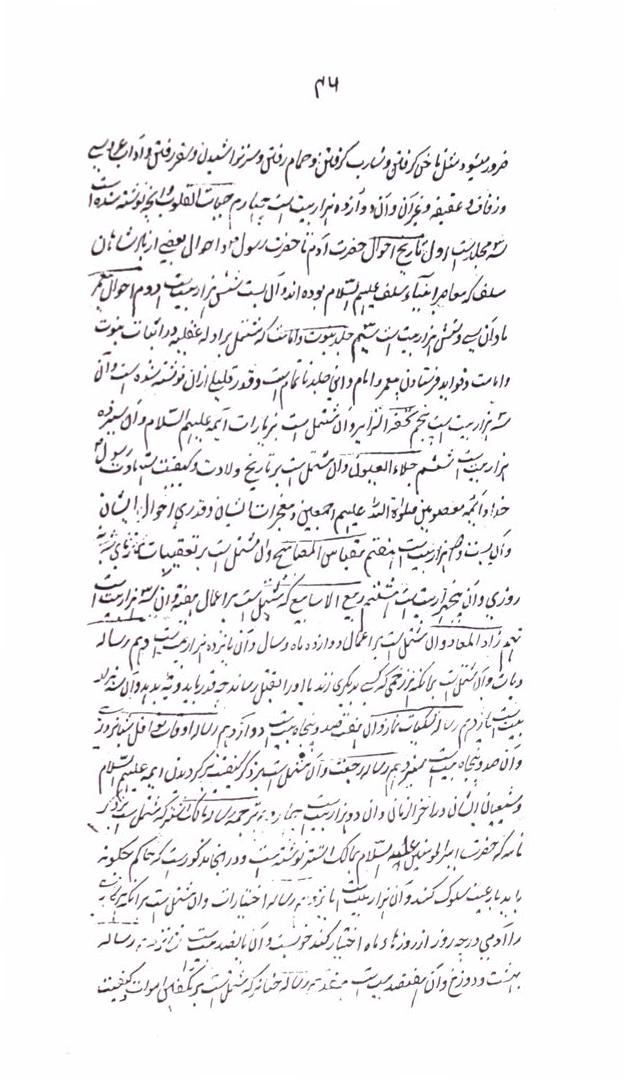 ۴۶
ضرور میشود مثل ناخن کرفتن و شارب کرفتن و حمام رفتن و سر تراشیدن و سفر رفتن و آداب عروسی
و زفاف و عقیقه و غیر آن و آن دوازده هزار بیت است چهارم حیات القلوب و آنچه نوشته شده است
سه مجلد است اول تاریخ احوال حضرت آدم تا حضرت رسول و احوال بعضی از پادشاهان
سلف که معاصر انبیاء سلف علیهم السلام بوده اند و آن بیست شش هزار بیت است دوم احوال پیغمبر
ما و آن سی و شش هزار بیت است سیم جلد نبوت و امامت که مشتمل بر ادله عقلیه در اثبات نبوت
و امامت و فواید فرستادن پیغمبر و امام و این جلد ناتمام است و قدر قلیلی از آن نوشته شده است و آن
سه هزار بیت است پنجم تحفة الزایر و آن مشتمل است بزیارات ائمه علیهم السلام و آن سیزده
هزار بیت است ششم جلاء العیون و آن مشتمل است بر تاریخ ولادت و کیفیت شهادت رسول
خدا و ائمه معصومین صلوات الله علیهم اجمعین و معجزات ایشان و قدری احوال ایشان
و آن بیست و دو هزار بیت است هفتم مقباس المصابیح و آن مشتمل است بر تعقیبات نمازهای
روزی و آن پنجهزار بیت است هشتم ربیع الاسابیع که مشتمل است بر اعمال هفته و آن سه هزار بیت است
نهم زاد المعاد و آن مشتمل است بر اعمال دوازده ماه و سال و آن پانزده هزار بیت است دهم رساله
دیات و آن مشتمل است بر آنکه هر زخمی که کسی بدیگری زند یا او را بقتل رساند چه قدر باید دیه بدهد و آن
بیت است یازدهم رساله شکیات نماز و آن هفتصد و پنجاه بیت است دوازدهم رساله اوقات نوافل
و آن صد و پنجاه بیت است سیزدهم رساله رجعت و آن مشتمل است بر ذکر کیفیت برگردیدن ائمه علیهم السلام
و شیعیان ایشان در آخر الزمان و آن دو هزار بیت است چهاردهم ترجمه رساله مالک اشتر که مشتمل است بر ذکر
نامه که حضرت امیر المومنین علیه السلام بمالک اشتر نوشته است و در آنجا مذکور است که حاکم چگونه
باید با رعیت سلوک کند و آن هزار بیت است پانزدهم رساله اختیارات و آن مشتمل است بر آنکه
را آدمی در چه روز از روزها و ماه اختیار کند خوبست و آن پانصد بیت است شانزدهم رساله
بهشت و دوزخ و آن هفتصد بیت است هفدهم رساله جنائز که مشتمل است بر تکفین اموات و کیفیت